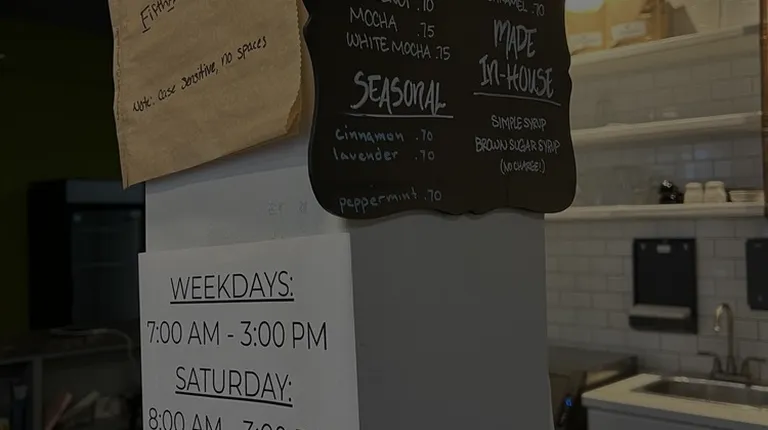 Note: Case Sensitive, no spaces
.70
MOCHA .75
WHITE MOCHA .75
SEASONAL
cinnamon .70
lavender .70
peppermint .70
.70
MADE
IN-HOUSE
SIMPLE SYRUP
BROWN SUGAR SYRUP
(NO CHARGE!)
WEEKDAYS:
7:00 AM - 3:00 PM
SATURDAY:
8:00 AM -